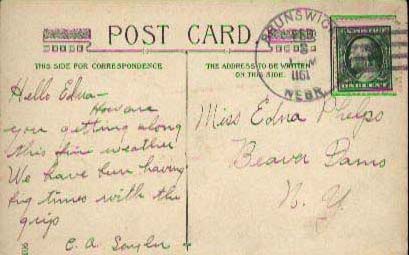 POST CARD
THIS SIDE FOR CORRESPONDENCE
THE ADDRESS TO BE WRITTEN
ON THIS SIDE.
BRUNSWICK
FEB
NEBR.
Hello Edna-
How are
you getting along
this fine weather
We have been having
big times with the
grip
E. A. Saylor
Miss Edna Phelps
Beaver Dams
N. Y.